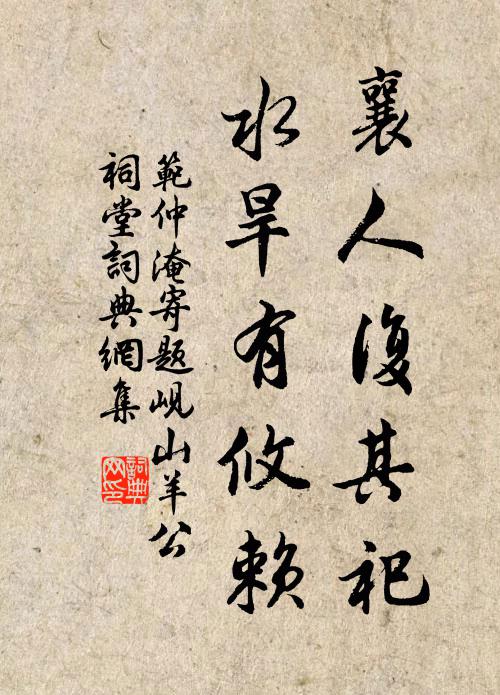 襄人復其祀
水旱有攸賴
範仲淹寄題峴山羊公
祠堂詞典網集
詞典網印